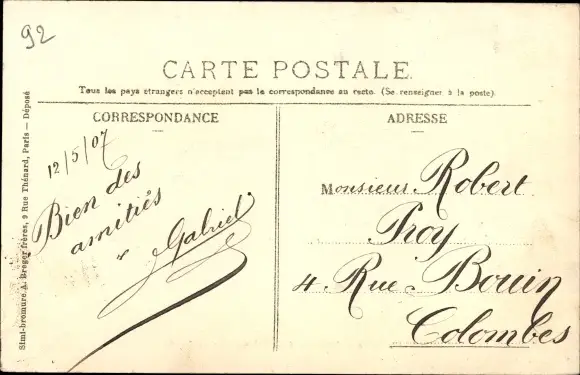 92
CARTE POSTALE
Tous les pays étrangers n'acceptent pas la correspondance au recto. (Se renseigner à la poste).
CORRESPONDANCE
12/5/07
Bien des
amitiés
Gabriel
ADRESSE
Monsieur Robert
Proy
4 Rue Bouin
Colombes
Simi-bromure A. Breger frères, 9 Rue Thénard, Paris — Déposé